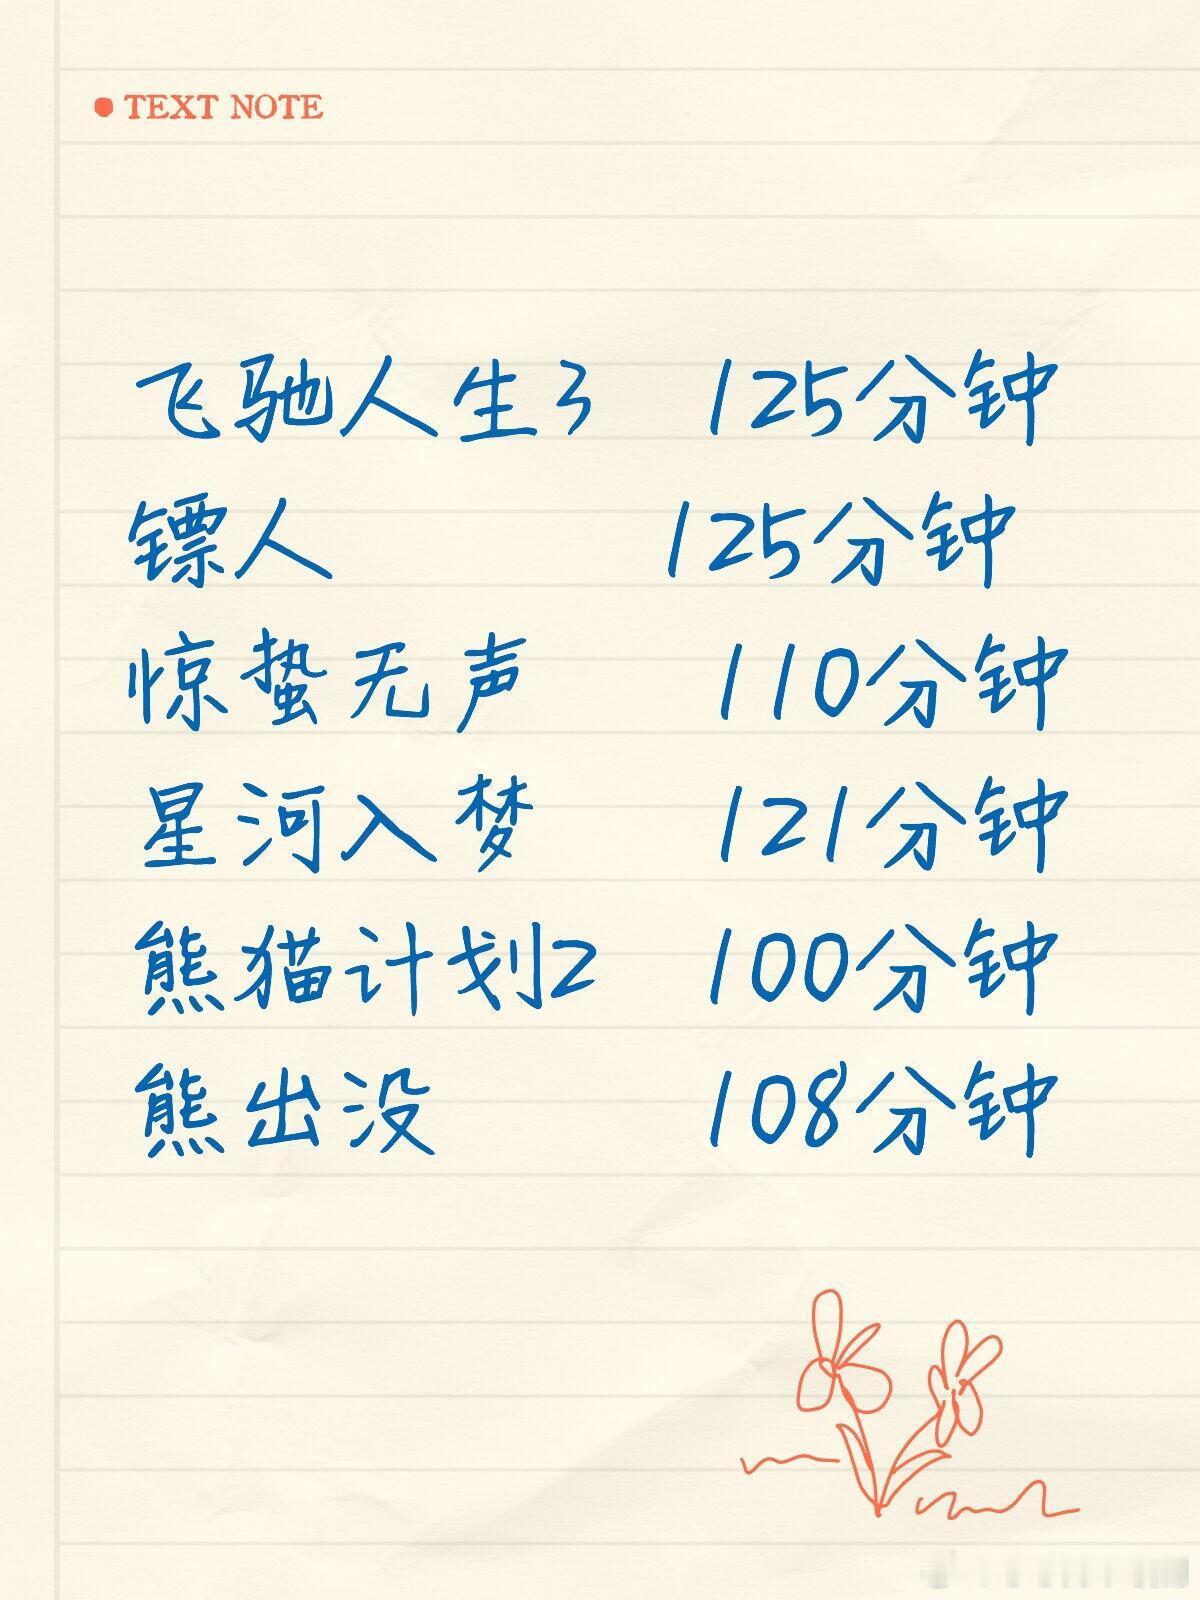 TEXT NOTE
飞驰人生3 125分钟
镖人 125分钟
惊蛰无声 110分钟
星河入梦 121分钟
熊猫计划2 100分钟
熊出没 108分钟